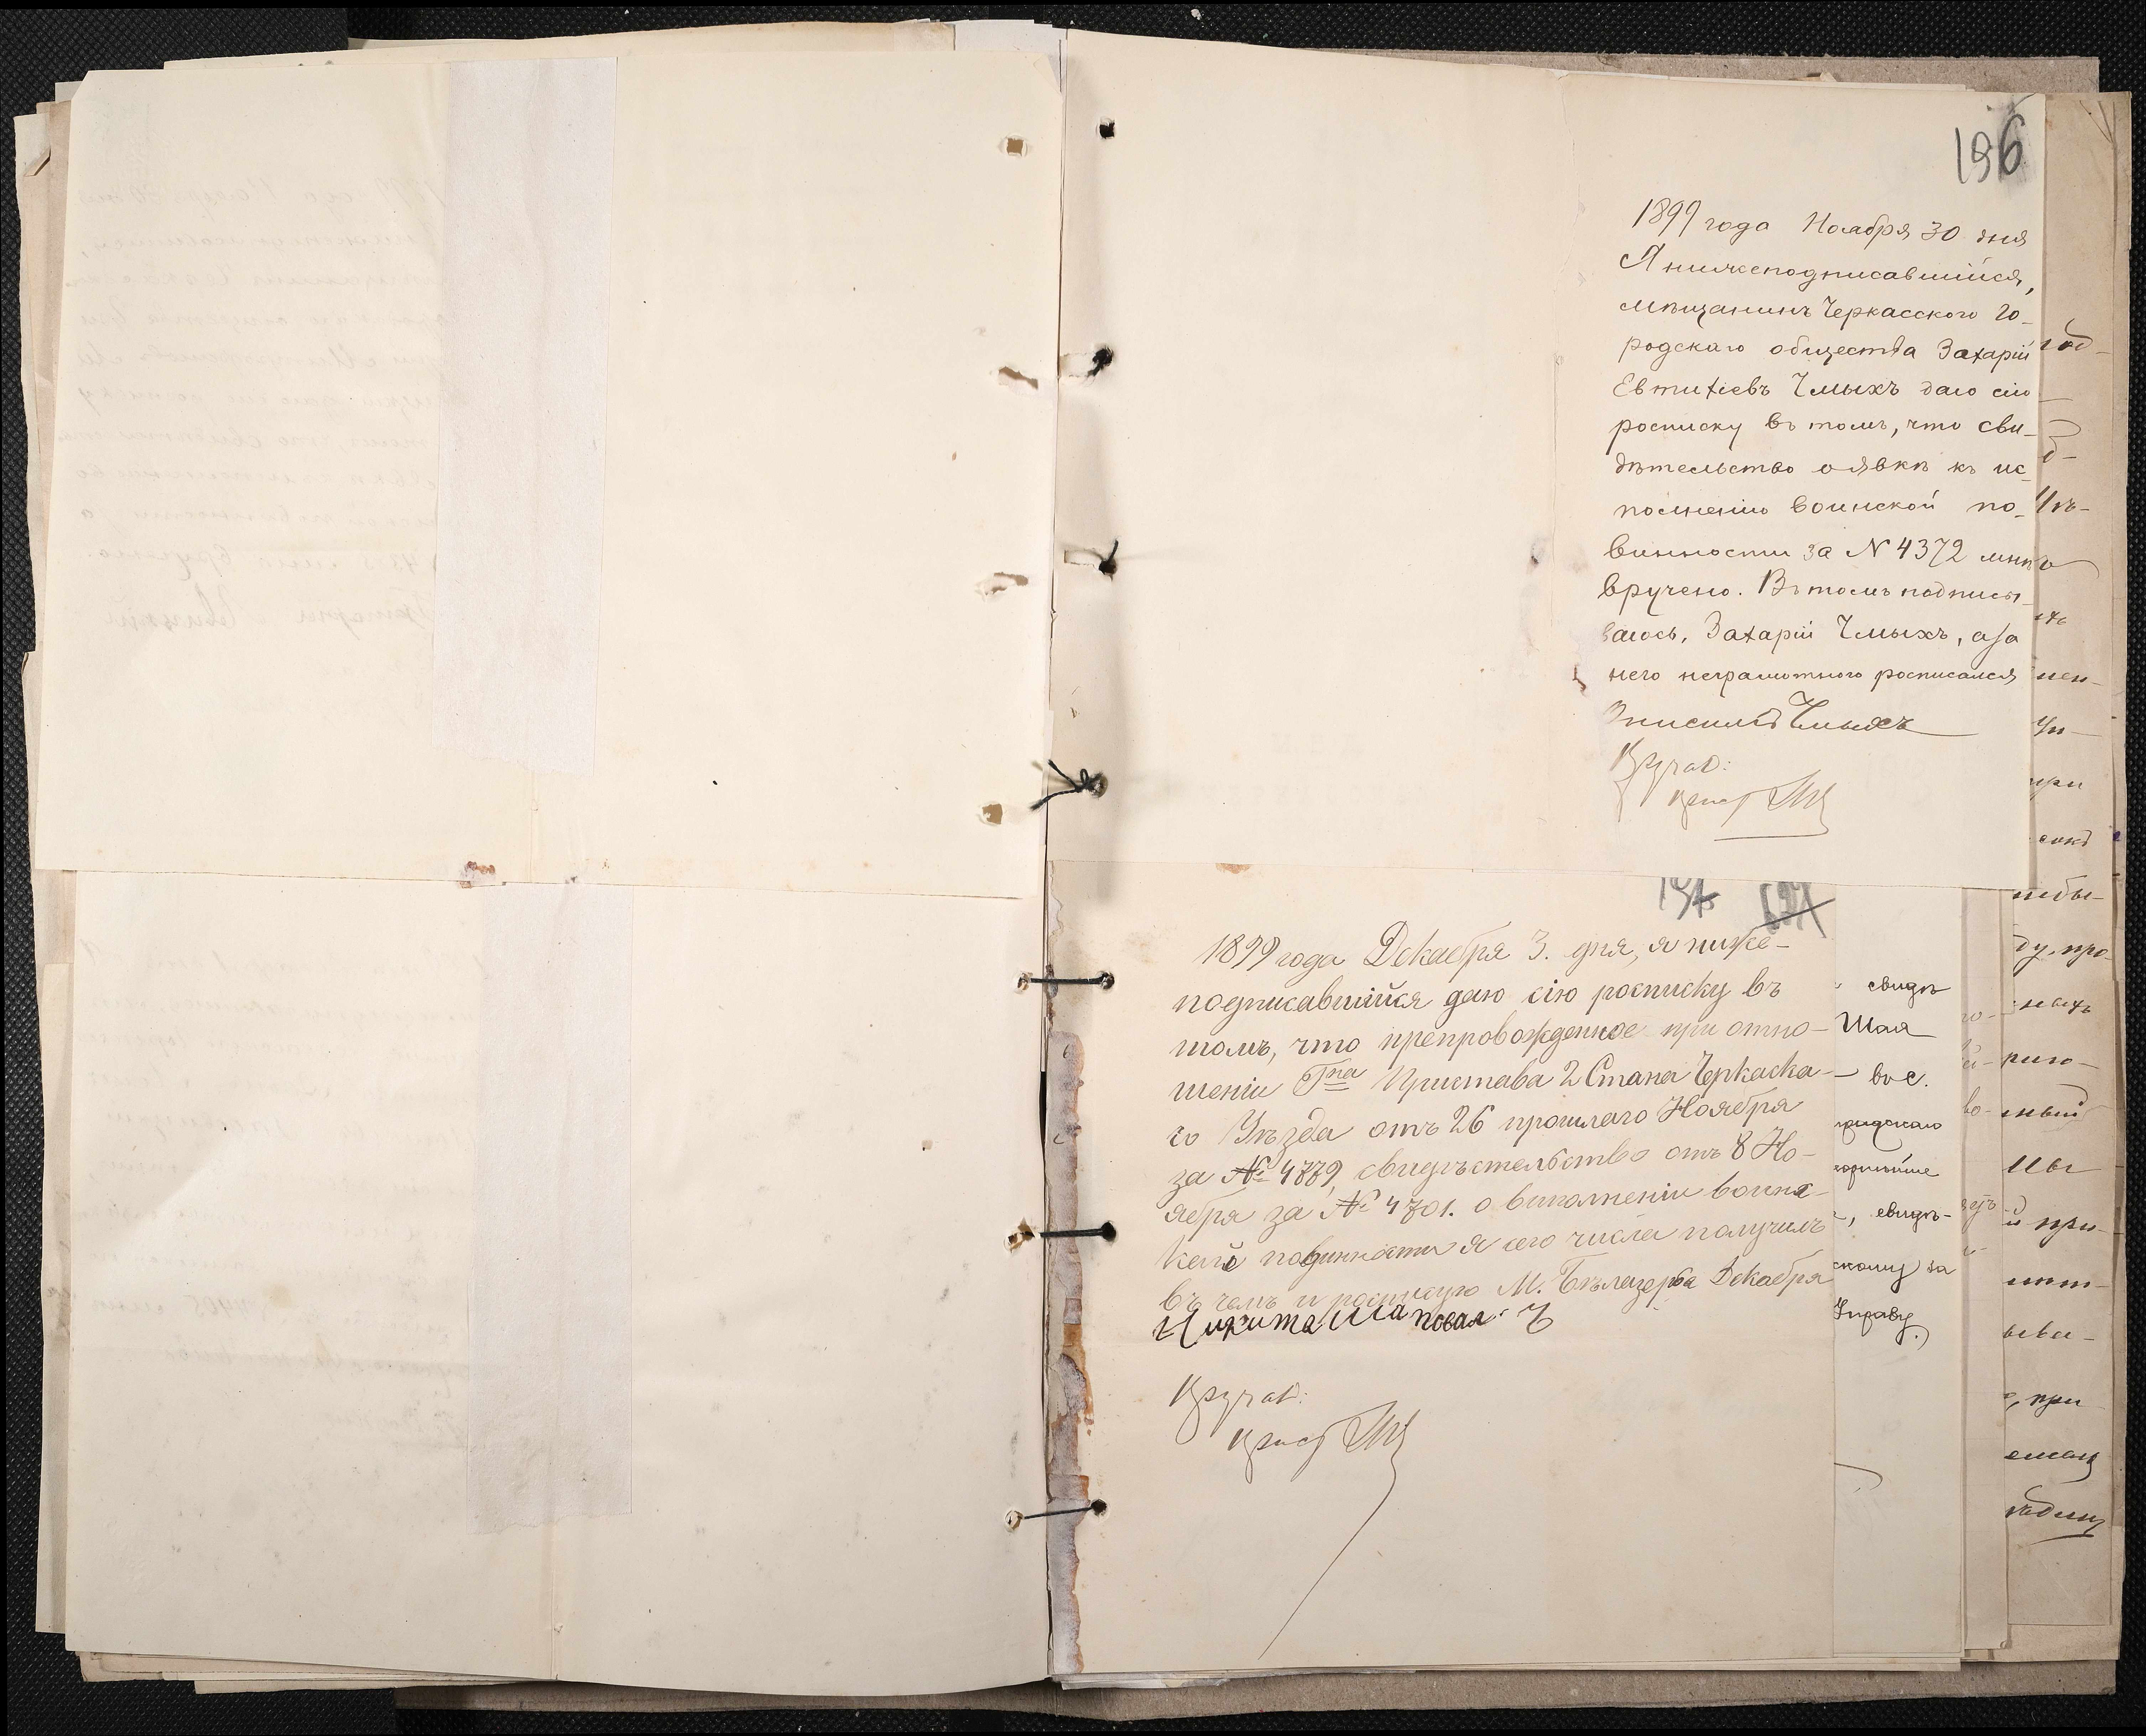 196
1899 года Ноября 30 дня
Я нижеподписавшійся,
мѣщанинъ Черкасского Го-
родскаго общества Захарій
Евтихіевъ Чмыхъ даю сію
росписку въ томъ, что сви-
дѣтельство о явкѣ къ ис-
полненію воинской по-
винности за N 4372 мнѣ
вручено. Въ томъ подписы-
ваюсь, Захарій Чмыхъ, а за
него неграмотного росписался
Чмыхъ
Вручал:
197
1899 года Декабря 3. дня, я ниже-
подписавшийся даю сію росписку въ
томъ, что препровожденное при отно-
шеніи Гна Пристава 2 Стана Черкаска-
го Уѣзда отъ 26 прошлаго Ноября
за № 4779, свидѣтельство отъ 8 Но-
ября за № 4701. о виполненіи воинс-
кой повинности я сего числа получилъ
въ чемъ и росписуюсь М. Бѣлазерье Декабря
Никита Шаповал 
Вручал:
свидѣ
Шая
вос.
свидѣ-
скому за
Управу.